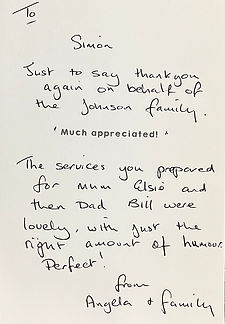 To
Simon
Just to say thankyou
again on behalf of
the Johnson family.
' Much appreciated! '
The services you prepared
for mum Elsie and
then Dad Bill were
lovely, with just the
right amount of humour.
Perfect!
from
Angela + family